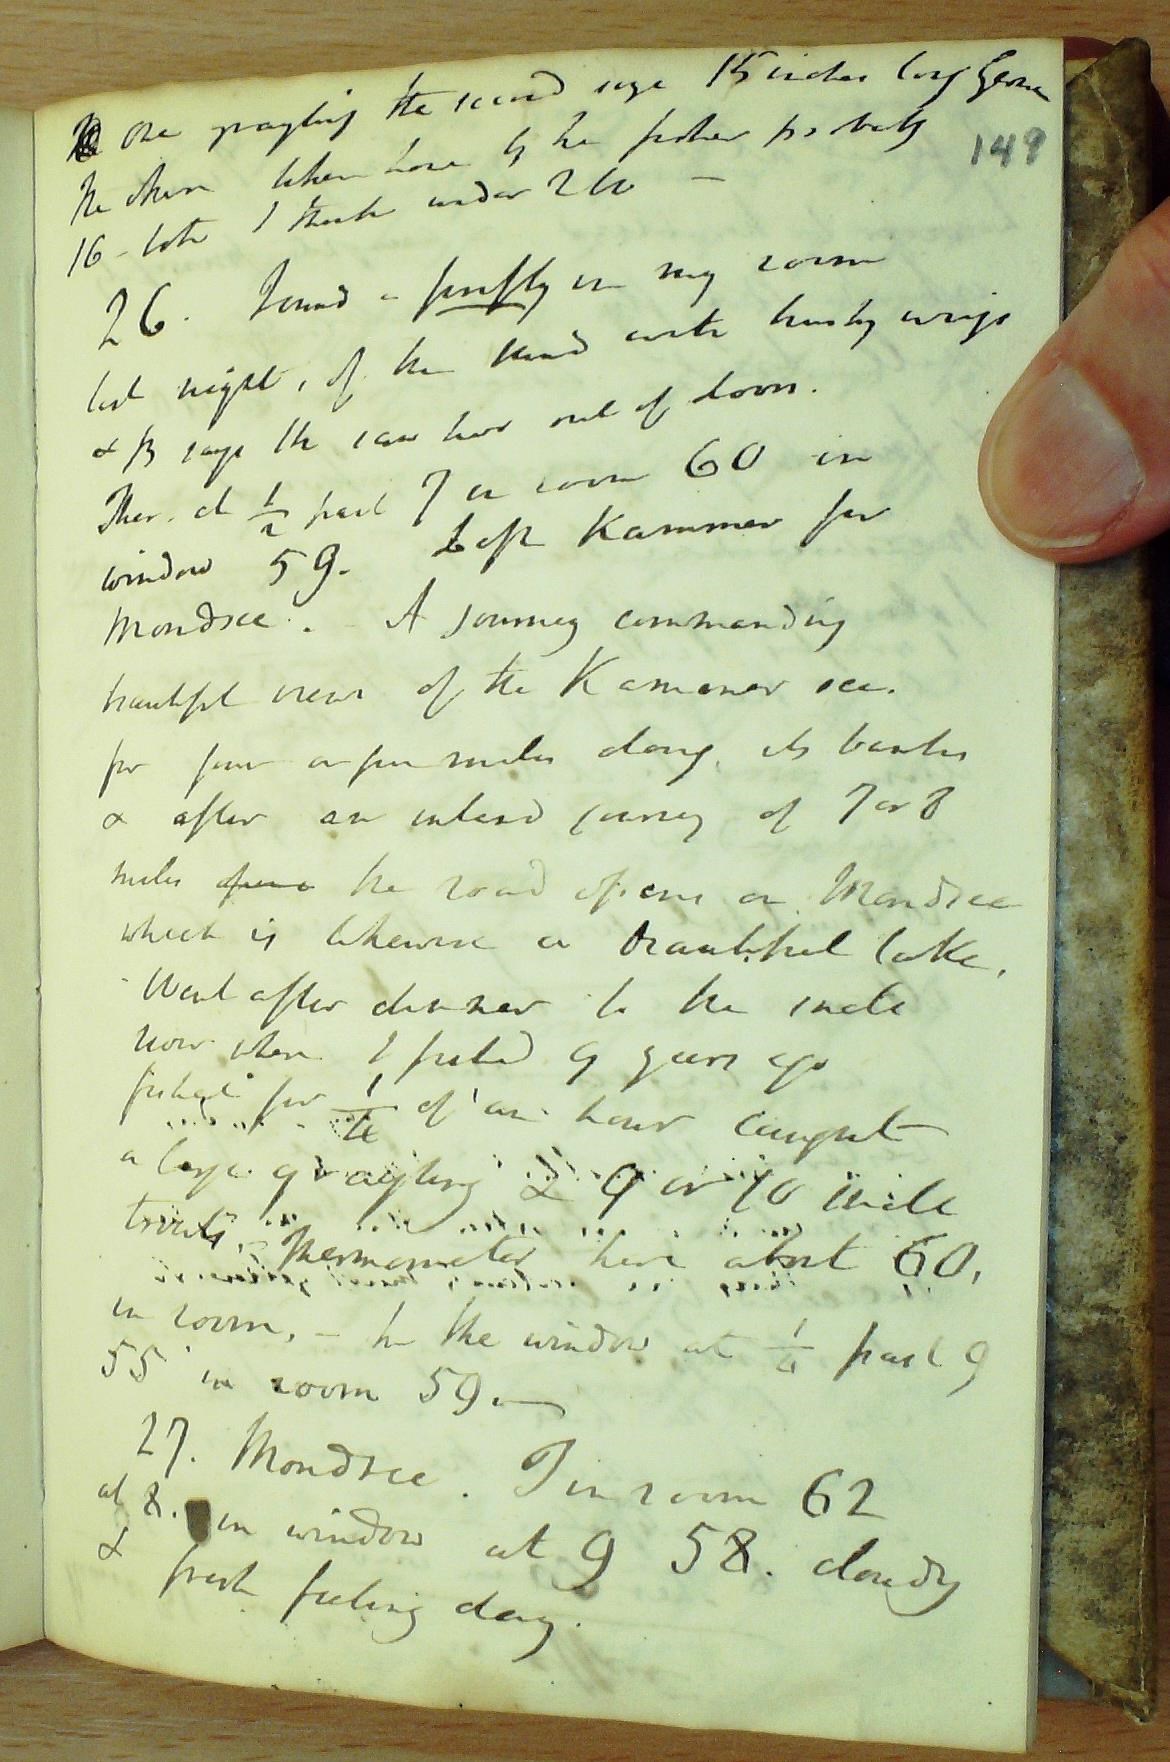 one grayling the second says 15 inches long
149
the other taken home by the fisher probably
16 - both I think under 2 lb —
26. Found a firefly in my room
last night, of the kind with husky wings
& B says she saw two out of doors.
Ther. at 1/2 past 7 in room 60 in
window 59. Left Kammer for
Mondsee. - A journey commanding
beautiful views of the Kammer see.
for four or five miles along its banks
& after an inland journey of 7 or 8
miles the road opens on Mondsee
which is likewise a beautiful lake.
Went after dinner to the
where I fished 9 years ago
fished for 1/4 of an hour caught
a large grayling & 9 or 10 little
trouts, - Thermometer here about 60.
in room. - In the window at 1/4 past 9
55 in room 59. —
27. Mondsee. T in room 62
at 8. in window at 9 58. cloudy
& fresh feeling day.